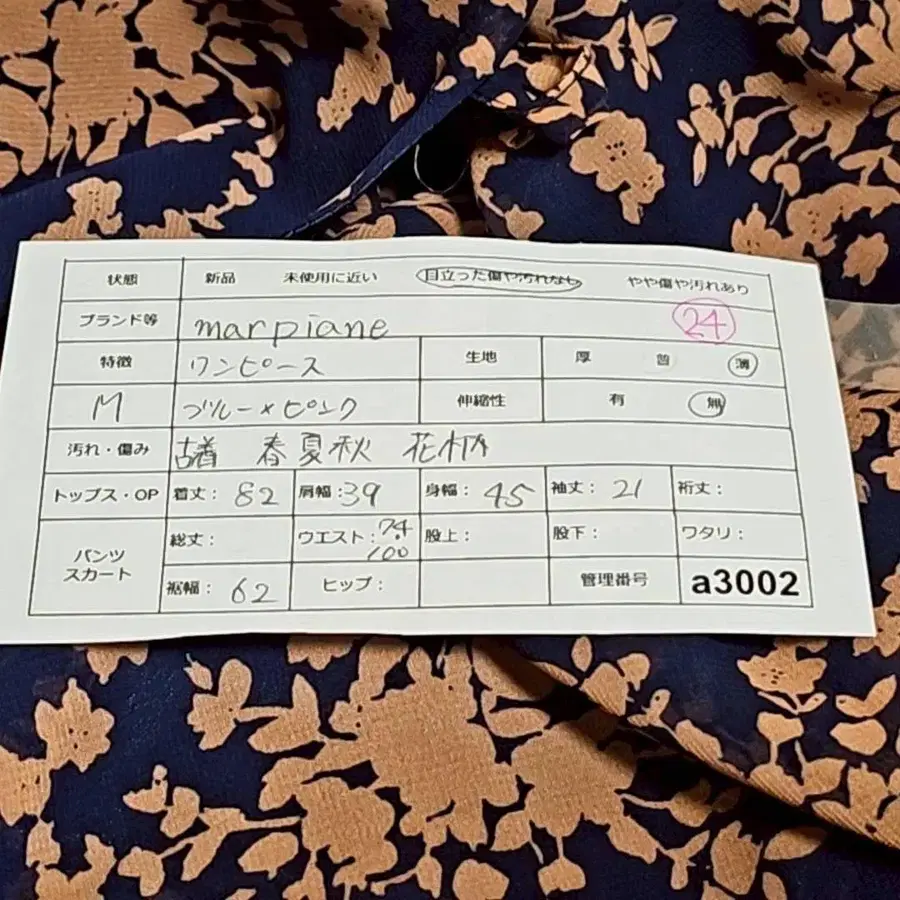 状態 新品 未使用に近い 目立った傷や汚れなし やや傷や汚れあり
ブランド等 marpiane 24
特徴 ワンピース 生地 厚 普 薄
M ブルー×ピンク 伸縮性 有 無
汚れ・傷み 古着 春夏秋 花柄
トップス・OP 着丈: 82 肩幅: 39 身幅: 45 袖丈: 21 裄丈:
パンツ スカート 総丈: ウエスト: 74 100 股上: 股下: ワタリ:
裾幅: 62 ヒップ: 管理番号 a3002